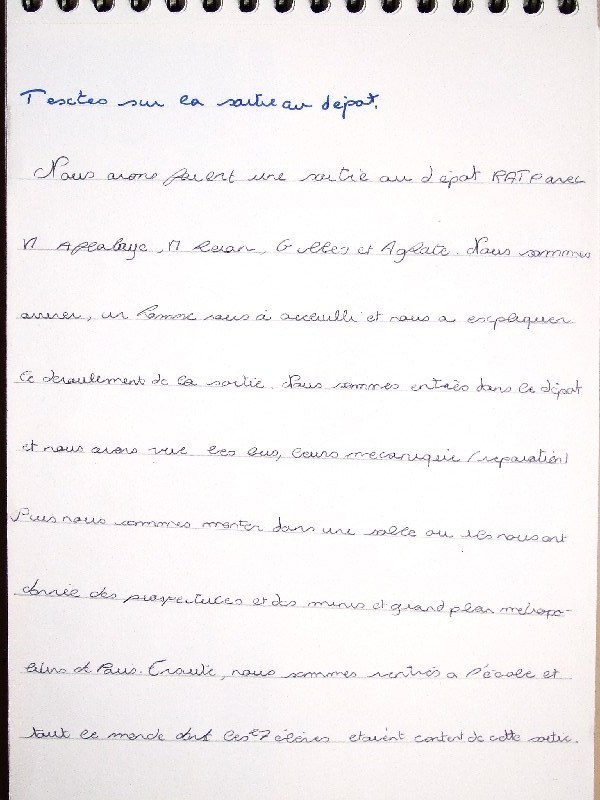 Textes sur la sortie au dépot.
Nous avons faient une sortie au dépot RATP avec
M , M , Gilles et Agkate. Nous sommes
arriver, un homme nous à acceuilli et nous a expliquer
le déroulement de la sortie. Nous sommes entrès dans le dépot
et nous avons vue les bus, cours mécanique (reparation)
Puis nous sommes monter dans une salle ou ils nous ont
donnée des prospectuces et des minis et grand plan métropo-
litins de Paris. Ensuite, nous sommes rentrès a l'école et
tout le monde dont les 27 élèves etaient content de cette sortie.